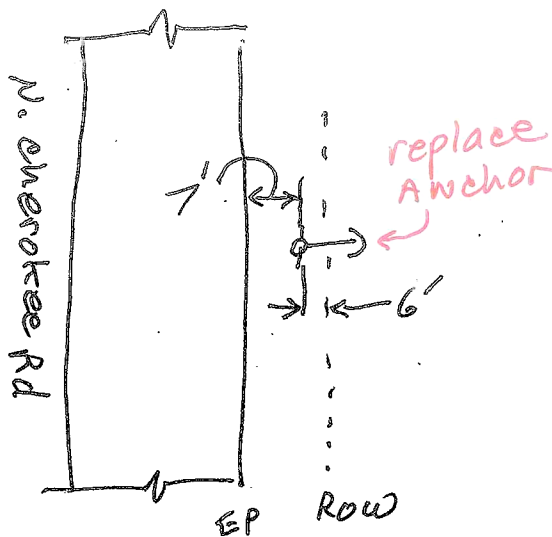 N. Cherokee Rd
7'
replace
Anchor
6'
EP
ROW